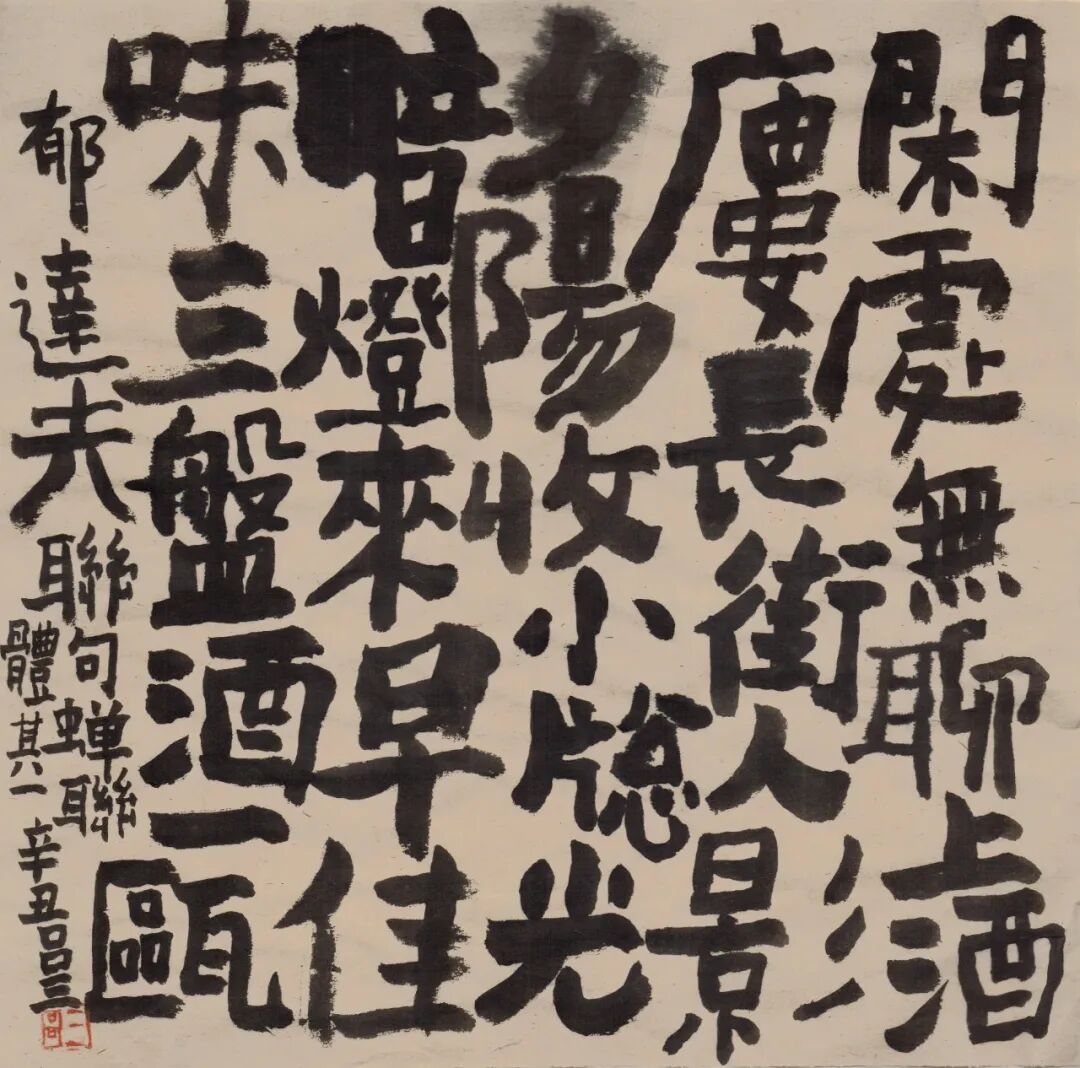 閑處無聊上酒
廔長街人影
夕陽收小牕光
暗燈來早佳
味三盤酒一甌
郁達夫聯句蝉聯
體其一辛丑吕三